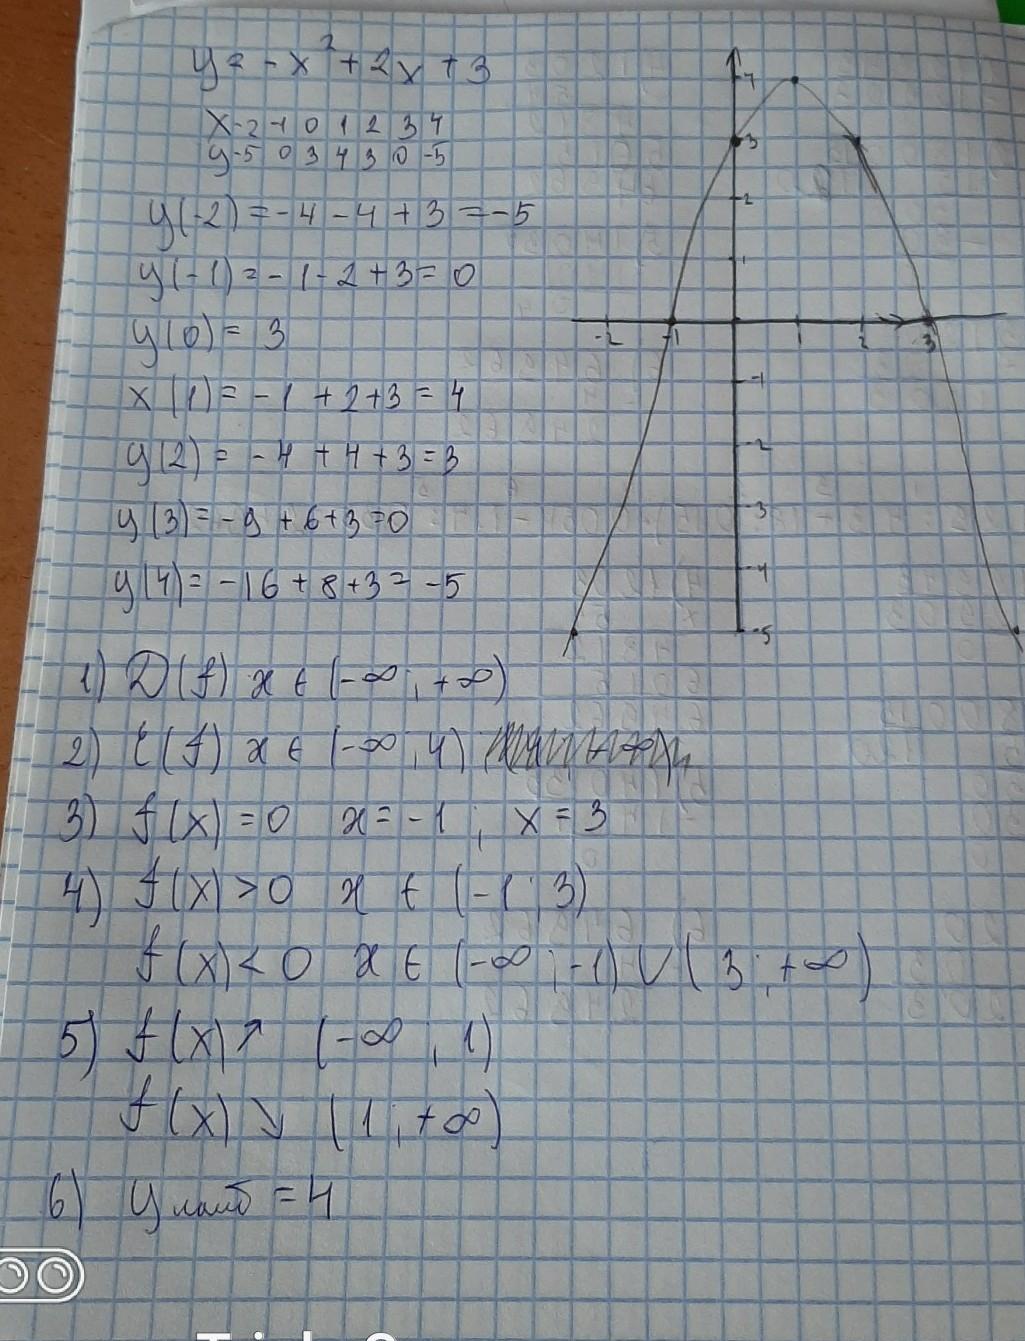 y = -x² + 2x + 3
x -2 -1 0 1 2 3 4
y -5 0 3 4 3 0 -5
y(-2) = -4 - 4 + 3 = -5
y(-1) = -1 - 2 + 3 = 0
y(0) = 3
x(1) = -1 + 2 + 3 = 4
y(2) = -4 + 4 + 3 = 3
y(3) = -9 + 6 + 3 = 0
y(4) = -16 + 8 + 3 = -5
4
3
2
1
-2 -1 1 2 3
-1
-2
-3
-4
-5
1) D(f) x ∈ (-∞; +∞)
2) E(f) x ∈ (-∞; 4)
3) f(x) = 0 x = -1; x = 3
4) f(x) > 0 x ∈ (-1; 3)
f(x) < 0 x ∈ (-∞; -1) ∪ (3; +∞)
5) f(x) ↗ (-∞; 1)
f(x) ↘ (1; +∞)
6) y наиб = 4